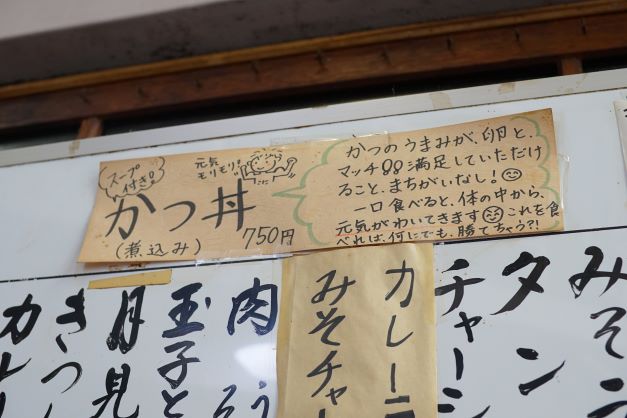 スープ
付き!!
元気
モリモリ!!
かつ丼
(煮込み)
750円
かつのうまみが、卵と、
マッチ!!満足していただけ
ること、まちがいなし!
一口食べると、体の中から、
元気がわいてきます これを食
べれば、何にでも、勝てちゃう?!
みそ
タン
チャーシ
カレーラ
みそチャー
肉う
玉子と
月見
きつ
カレ